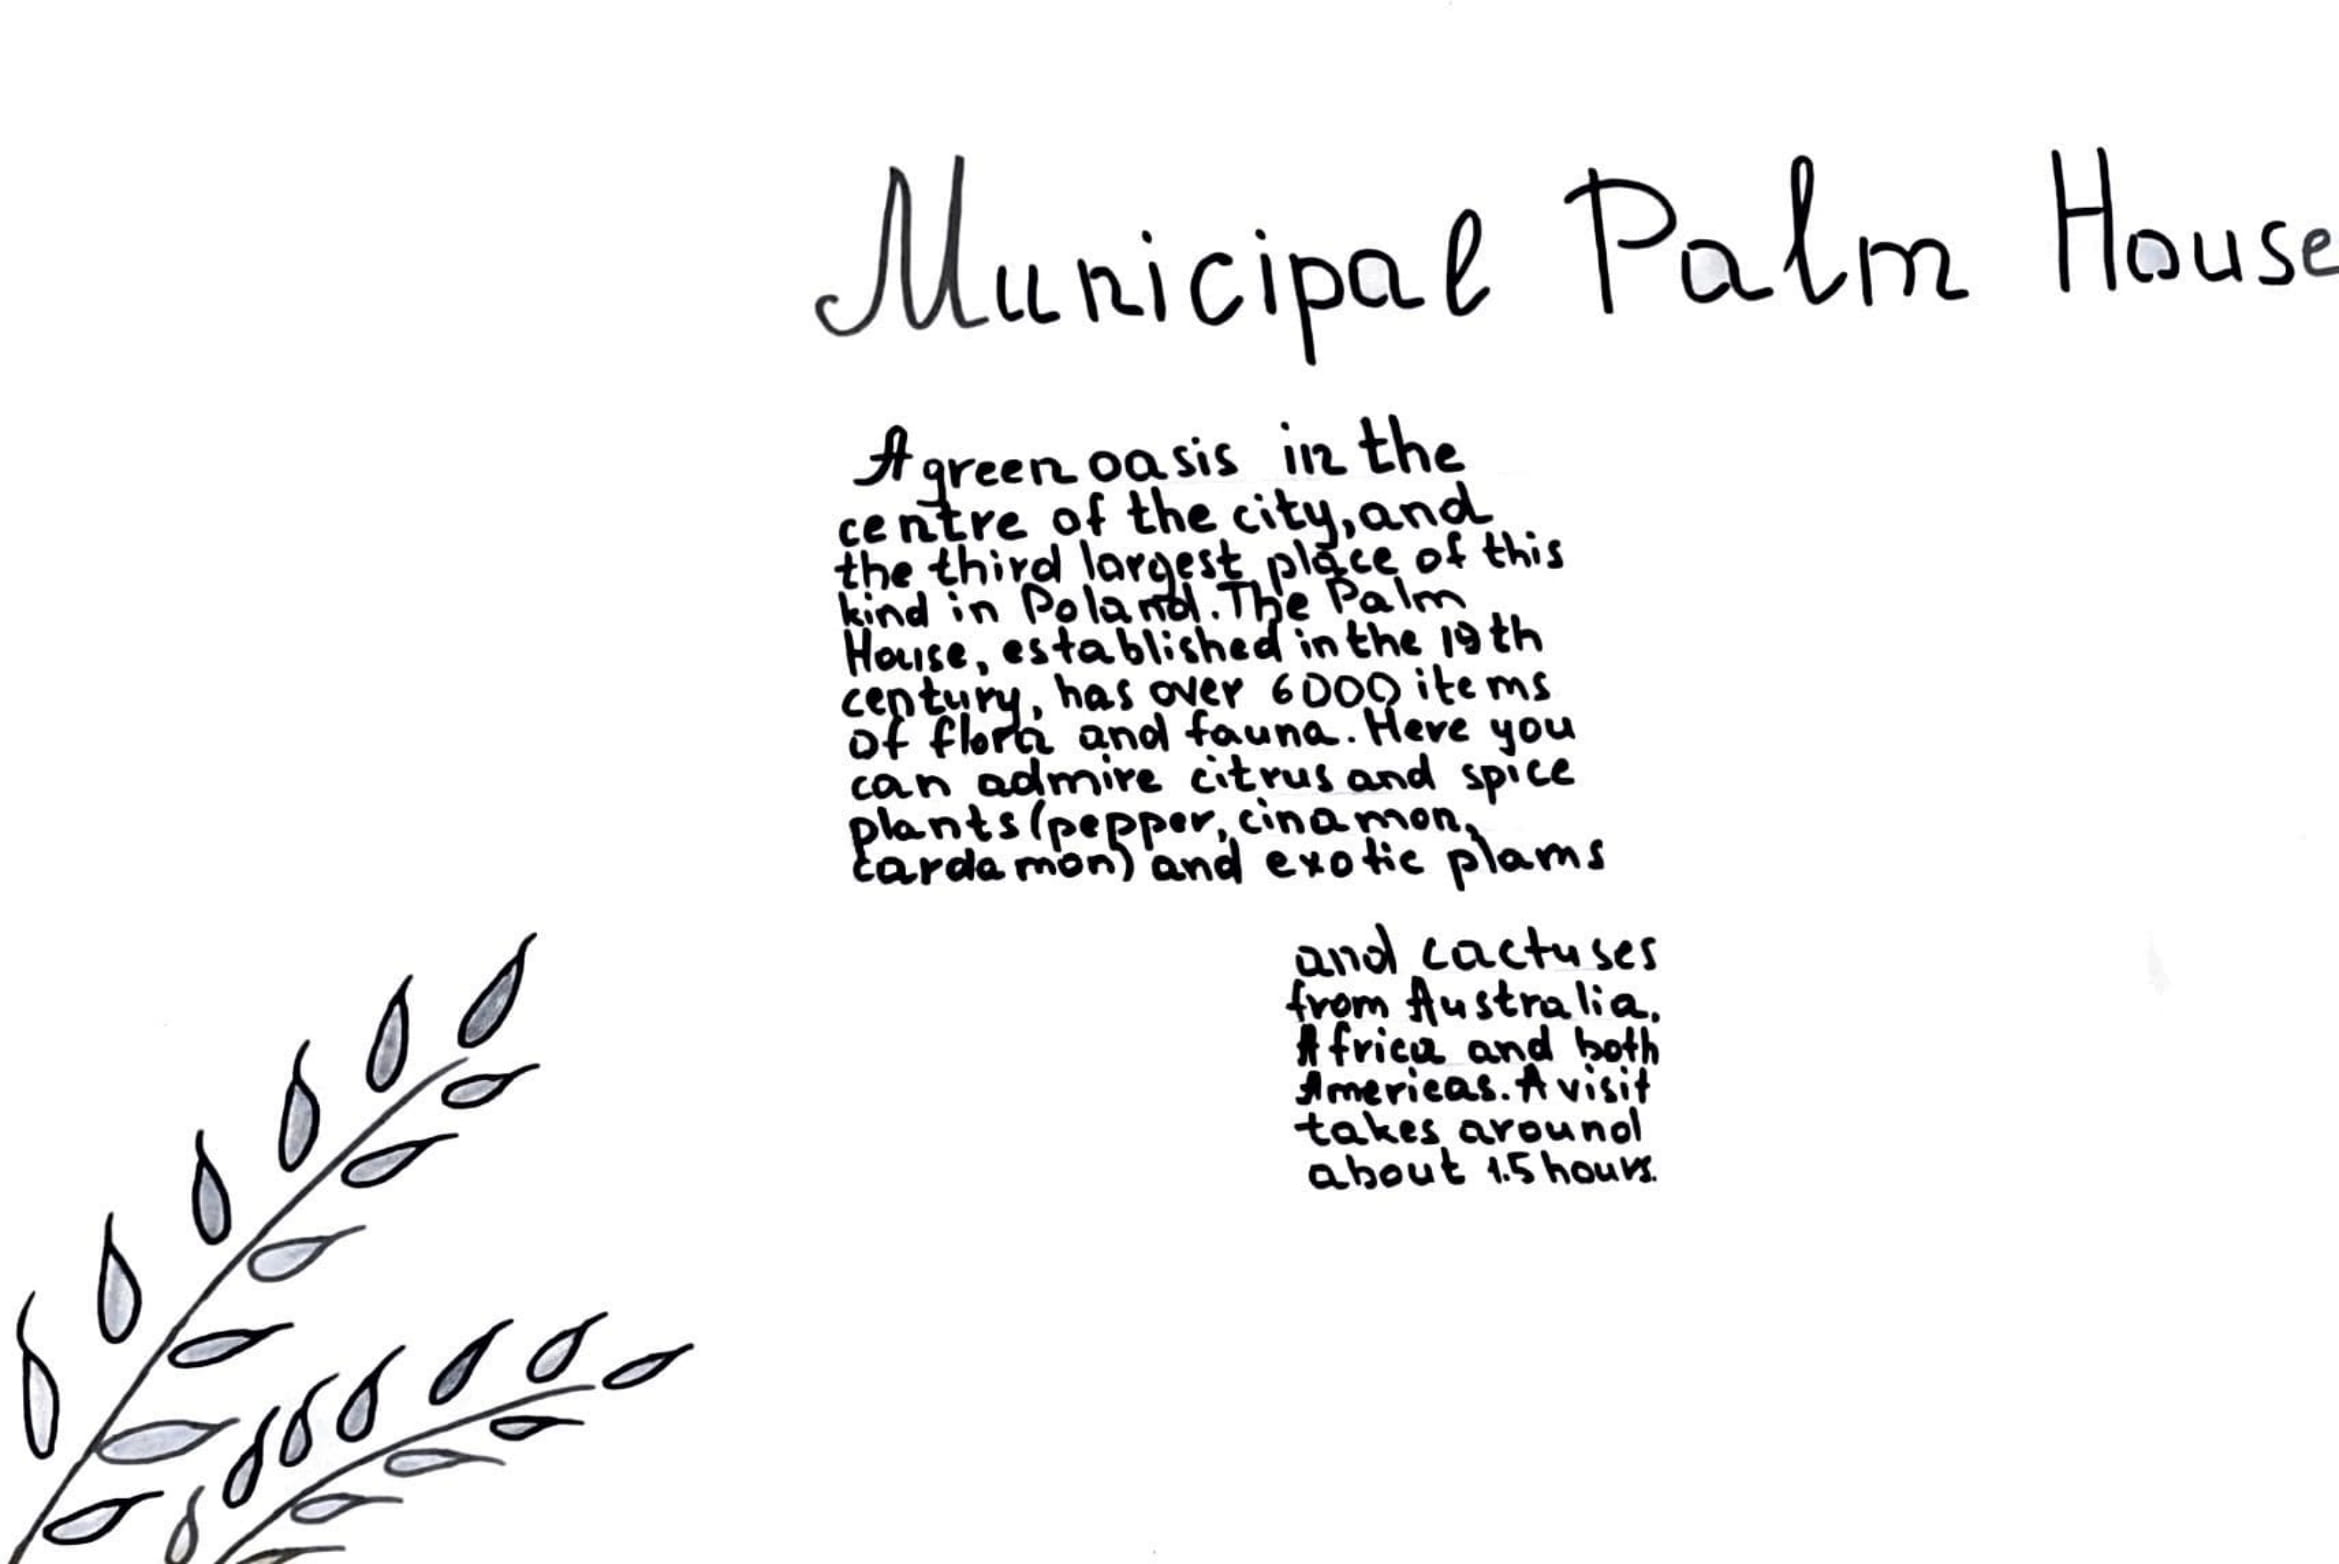 Municipal Palm House
A green oasis in the
centre of the city, and
the third largest place of this
kind in Poland. The Palm
House, established in the 19th
century, has over 6000 items
of flora and fauna. Here you
can admire citrus and spice
plants (pepper, cinamon,
cardamon) and exotic plams
and cactuses
from Australia,
Africa and both
Americas. A visit
takes around
about 1.5 hours.